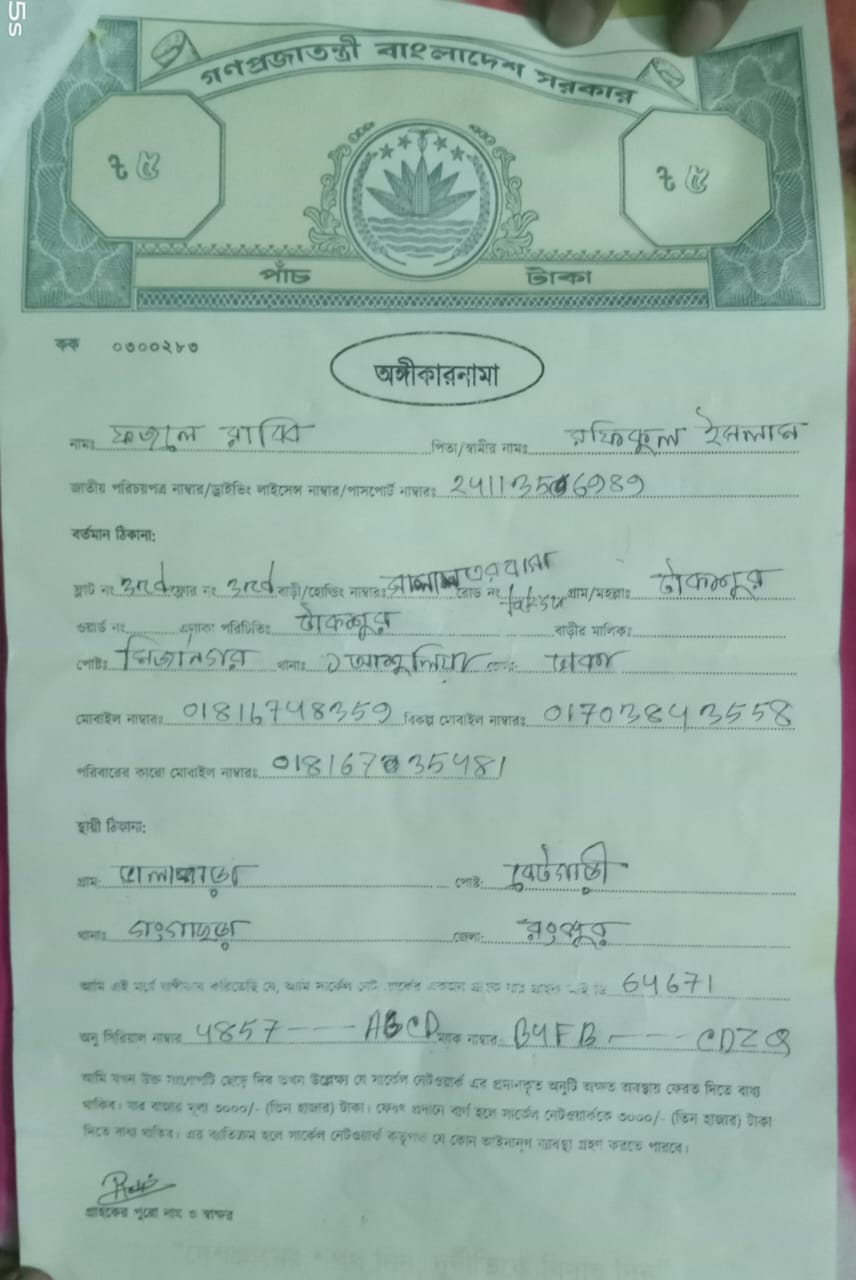 5s
গণপ্রজাতন্ত্রী বাংলাদেশ সরকার
৳ ৫ ৳ ৫
পাঁচ টাকা
কক ০৩০০২৮৩
অঙ্গীকারনামা
নামঃ ফজলে রাব্বি পিতা/স্বামীর নামঃ রফিকুল ইসলাম
জাতীয় পরিচয়পত্র নাম্বার/ড্রাইভিং লাইসেন্স নাম্বার/পাসপোর্ট নাম্বারঃ
বর্তমান ঠিকানা:
ফ্লাট নং 3rd ফ্লোর নং 3rd বাড়ী/হোল্ডিং নাম্বারঃ রোড নং গ্রাম/মহল্লাঃ টাকশুর
ওয়ার্ড নং এলাকা পরিচিতিঃ টাকশুর বাড়ীর মালিক:
পোষ্টঃ মির্জানগর থানাঃ আশুলিয়া জেলা: ঢাকা
মোবাইল নাম্বারঃ 01816748359 বিকল্প মোবাইল নাম্বারঃ 01703843558
পরিবারের কারো মোবাইল নাম্বারঃ
স্থায়ী ঠিকানা:
গ্রাম: পোষ্ট: বেটগাড়ী
থানাঃ গংগাচড়া জেলা: রংপুর
আমি এই মর্মে অঙ্গীকার করিতেছি যে, আমি সার্কেল নেট ওয়ার্কের একজন গ্রাহক যার গ্রাহক আই ডি 64671
অনু সিরিয়াল নাম্বার 4857 --- ABCD ম্যাক নাম্বার B4FB --- CDZQ
আমি যখন উক্ত সংযোগটি ছেড়ে দিব তখন উল্লেক্ষ্য যে সার্কেল নেটওয়ার্ক এর প্রদানকৃত অনুটি অক্ষত অবস্থায় ফেরত দিতে বাধ্য
থাকিব। যার বাজার মূল্য ৩০০০/- (তিন হাজার) টাকা। ফেরৎ প্রদানে ব্যর্থ হলে সার্কেল নেটওয়ার্ককে ৩০০০/- (তিন হাজার) টাকা
দিতে বাধ্য থাকিব। এর ব্যতিক্রম হলে সার্কেল নেটওয়ার্ক কতৃপক্ষ যে কোন আইনানুগ ব্যাবস্থা গ্রহণ করতে পারবে।
গ্রাহকের পুরো নাম ও স্বাক্ষর